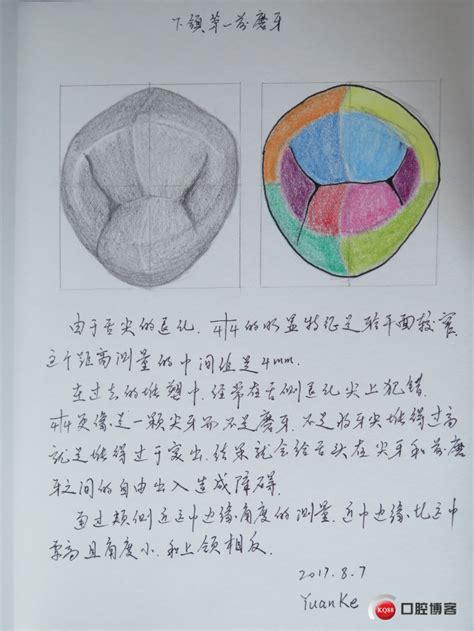 下颌第一前磨牙
由于舌尖的退化, 4|4的明显特征是𬌗平面较窄
这个距离测量的中间值是4mm.
在过去的堆塑中, 经常在舌侧退化尖上犯错.
4|4更像是一颗尖牙而不是磨牙, 不是将牙尖堆得过高
就是堆得过于突出, 结果就会给舌头在尖牙和前磨
牙之间的自由出入造成障碍.
通过颊侧近远中边缘角度的测量, 近中边缘比远中
要高且角度小, 和上颌相反.
2017.8.7
YuanKe
KQ88 口腔博客